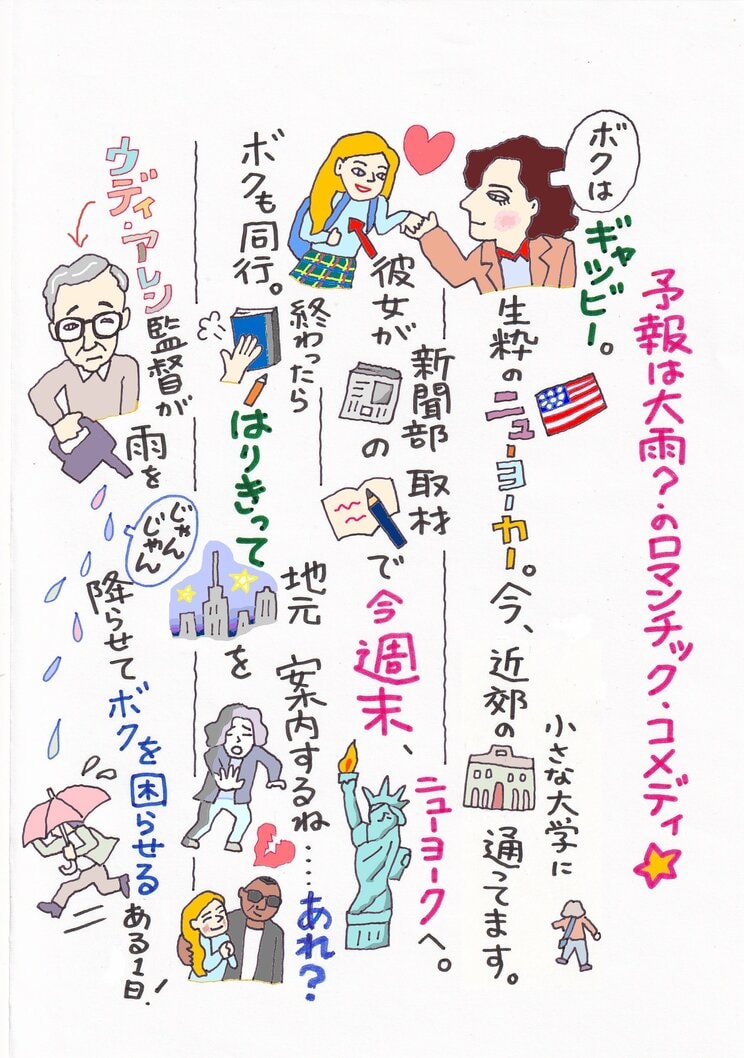 予報は大雨？のロマンチック・コメディ
ボクは
ギャツビー。
生粋のニューヨーカー。今、近郊の
小さな大学に
通ってます。
彼女が
新聞部の
取材
で今週末、
ニューヨークへ。
ボクも同行。
終わったら
はりきって
地元
を
案内するね……あれ？
ウディ・アレン
監督が
雨を
じゃんじゃん
降らせてボクを困らせる
ある1日！